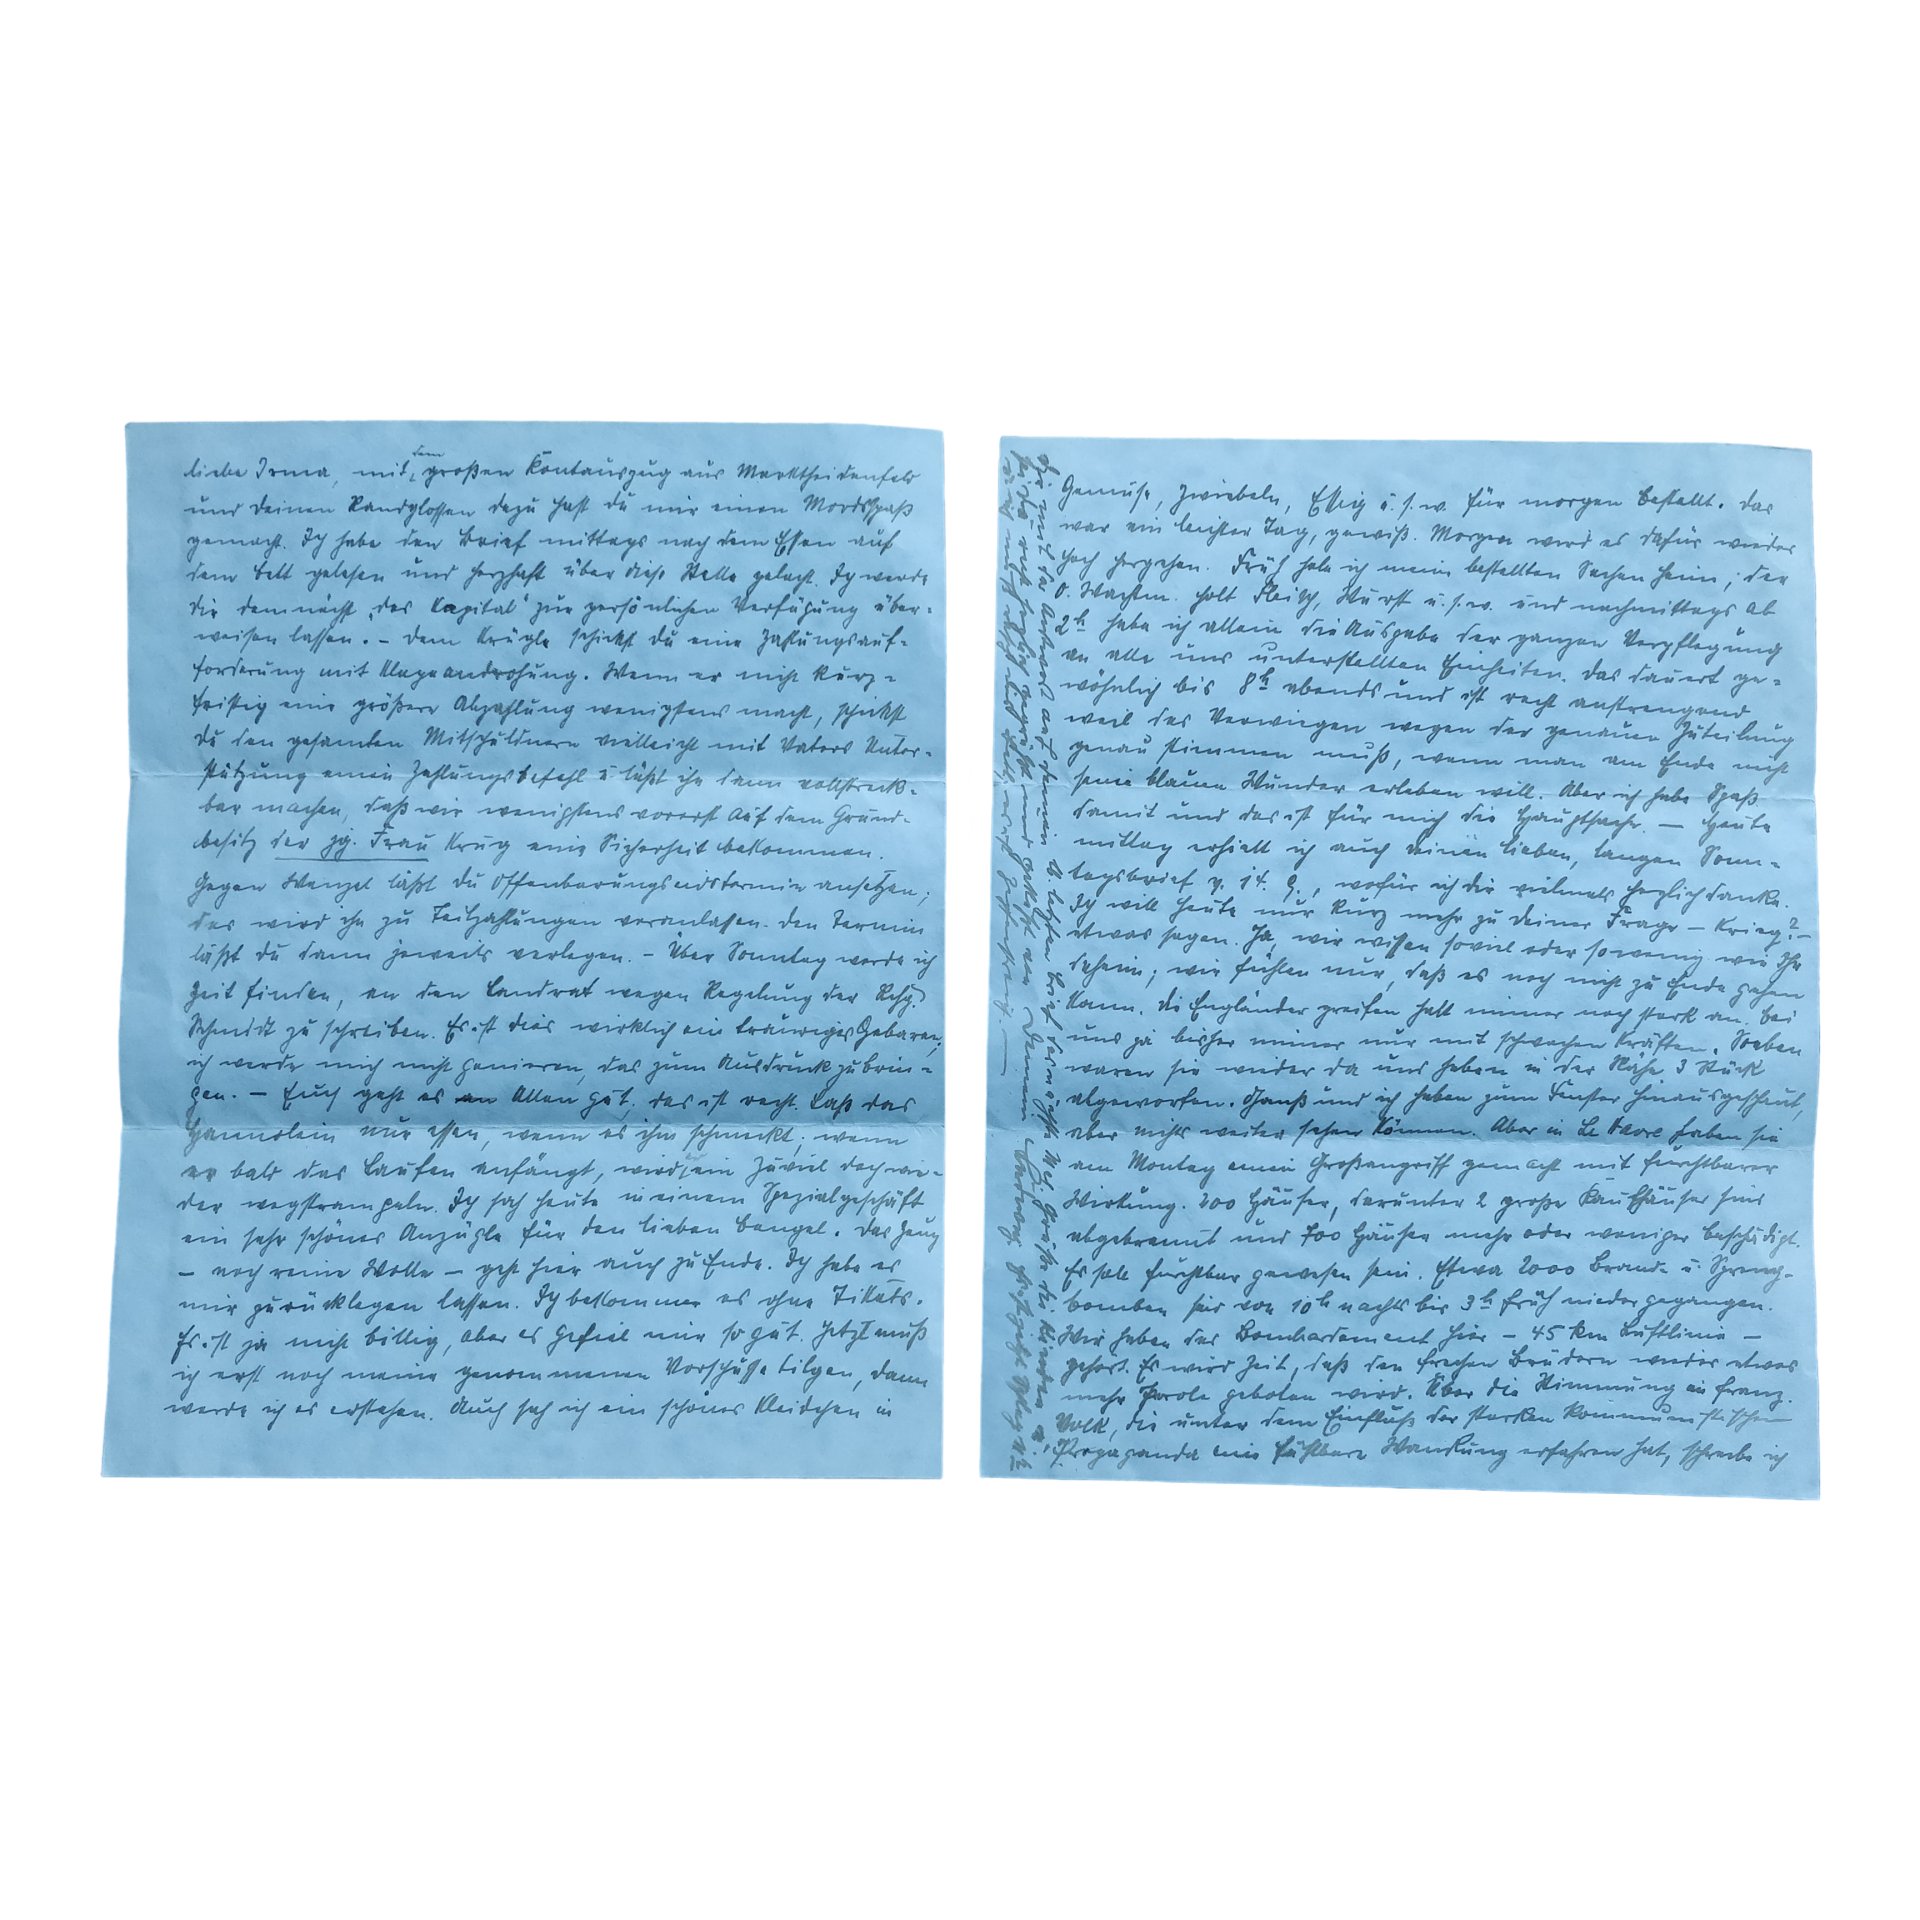 liebe Irma, mit dem großen Kontauszug aus Marktheidenfeld
und deinen Randglossen dazu hast du mir einen Mordsspaß
gemacht. Ich habe den Brief mittags nach dem Essen auf
dem Bett gelesen und herzhaft über diese Stelle gelacht. Ich werde
dir demnächst "das Kapital" zur persönlichen Verfügung über-
weisen lassen. – Dem Krügle schickst du eine Zahlungsauf-
forderung mit Klageandrohung. Wenn er nicht kurz-
fristig eine größere Abzahlung wenigstens macht, schickst
du den gesamten Mitschuldnern vielleicht mit Vaters Unter-
stützung einen Zahlungsbefehl u. läßt ihn dann vollstreck-
bar machen, daß wir wenigstens vorerst auf dem Grund-
besitz der zg. Frau Krug eine Sicherheit bekommen.
Gegen Wenzel läßt du Offenbarungseidstermin ansetzen;
das wird ihn zu Teilzahlungen veranlassen. Den Termin
läßt du dann jeweils verlegen. – Über Sonntag werde ich
Zeit finden, an den Landrat wegen Regelung der Rchg.
Schmidt zu schreiben. Es ist dies wirklich ein trauriges Gebaren;
ich werde mich nicht genieren, das zum Ausdruck zu brin-
gen. – Euch geht es an Allem gut, das ist recht. Laß das
Hannslein nur essen, wenn es ihm schmeckt; wenn
er bald das Laufen anfängt, wird er ein Zuviel doch wie-
der wegstrampeln. Ich sah heute in einem Spezialgeschäft
ein sehr schönes Anzügle für den lieben Bengel. Das Zeug
– noch reine Wolle – geht hier auch zu Ende. Ich habe es
mir zurücklegen lassen. Ich bekomme es ohne Tikets.
Es ist ja nicht billig, aber es gefiel mir so gut. Jetzt muß
ich erst noch meine genommenen Vorschüsse tilgen, dann
werde ich es erstehen. Auch sah ich ein schönes Kleidchen in
Gemüse, Zwiebeln, Essig u.s.w. für morgen bestellt. Das
war ein leichter Tag, gewiß. Morgen wird es dafür wieder
hoch hergehen. Früh hole ich meine bestellten Sachen heim; der
O. Wachtm. holt Fleisch, Wurst u.s.w. und nachmittags ab
2h habe ich allein die Ausgabe der ganzen Verpflegung
an alle uns unterstellten Einheiten. Das dauert ge-
wöhnlich bis 8h abends und ist recht anstrengend
weil das Verwiegen wegen der genauen Zuteilung
genau stimmen muß, wenn man am Ende nicht
seine blauen Wunder erleben will. Aber ich habe Spaß
damit und das ist für mich die Hauptsache. – Heute
mittag erhielt ich auch deinen lieben, langen Sonn-
tagsbrief v. 14. 9., wofür ich dir vielmals herzlich danke.
Ich will heute nur kurz mehr zu deiner Frage – Krieg? –
etwas sagen. Ja, wir wissen soviel oder sowenig wie Ihr
daheim; wir fühlen nur, daß es noch nicht zu Ende gehen
kann. Die Engländer greifen halt immer noch stark an. Bei
uns ja bisher immer nur mit schwachen Kräften. Soeben
waren sie wieder da und haben in der Nähe 3 Stück
abgeworfen. Hanß und ich haben zum Fenster hinausgeschaut,
aber nichts weiter sehen können. Aber in Le Havre haben sie
am Montag einen Großangriff gemacht mit furchtbarer
Wirkung. 200 Häuser, darunter 2 große Kaufhäuser sind
abgebrannt und 700 Häuser mehr oder weniger beschädigt.
Es soll furchtbar gewesen sein. Etwa 2000 Brand- u. Spreng-
bomben sind von 10h nachts bis 3h früh niedergegangen.
Wir haben das Bombardement hier – 45 km Luftlinie –
gehört. Es wird Zeit, daß den frechen Brüdern wieder etwas
mehr Parole geboten wird. Über die Stimmung im franz.
Volk, die unter dem Einfluß der starken kommunistischen
Propaganda eine fühlbare Wandlung erfahren hat, schreibe ich
dir mit der Antwort auf deinen l. letzten Brief das nächste Mal. Grüße die Kinder u.